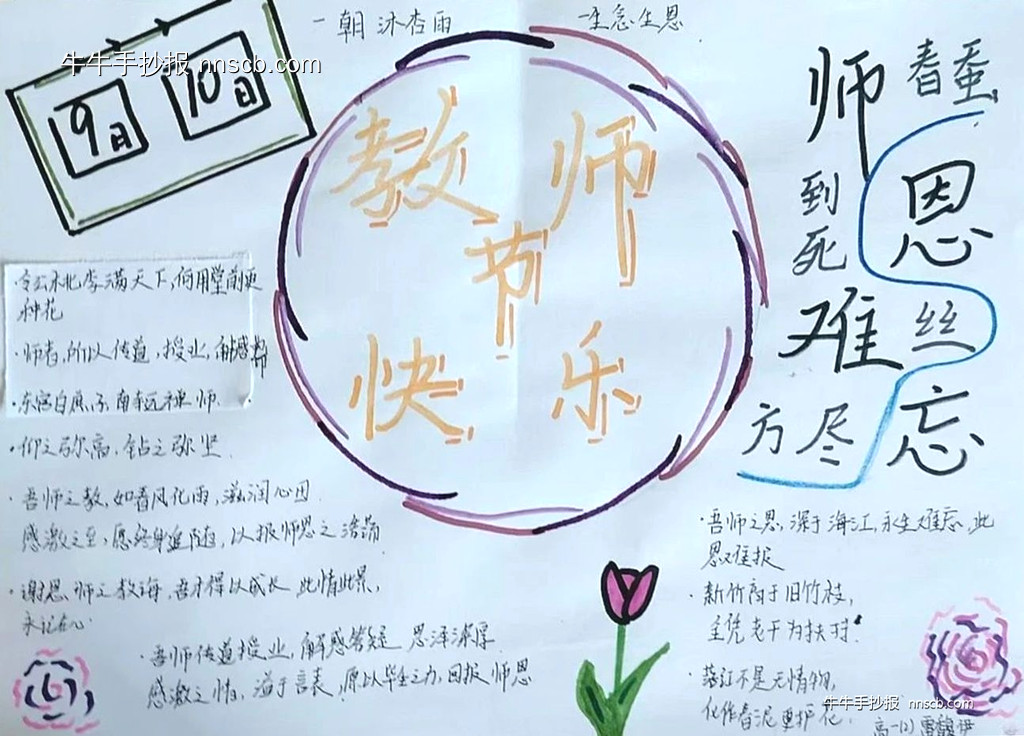 一朝沐杏雨
一生念生恩
牛牛手抄报 nnscb.com
9日
10日
教师
节
快乐
师恩难忘
春蚕
到死
丝
方尽
·令公桃李满天下,何用堂前更
种花
·师者,所以传道,授业,解惑
·仰之弥高,钻之弥坚
·吾师之教,如春风化雨,滋润心田
感激之至,愿终身追随,以报师恩之浩荡
·谢恩师之教诲,吾才得以成长 此情此景,
永记在心
·吾师传道授业,解惑答疑 恩泽深厚
感激之情,溢于言表,愿以毕生之力,回报师恩
·吾师之恩,深于海江,永生难忘,此
恩难报
·新竹高于旧竹枝,
全凭老干为扶持.
·落红不是无情物,
化作春泥更护花.
牛牛手抄报 nnscb.com
高一